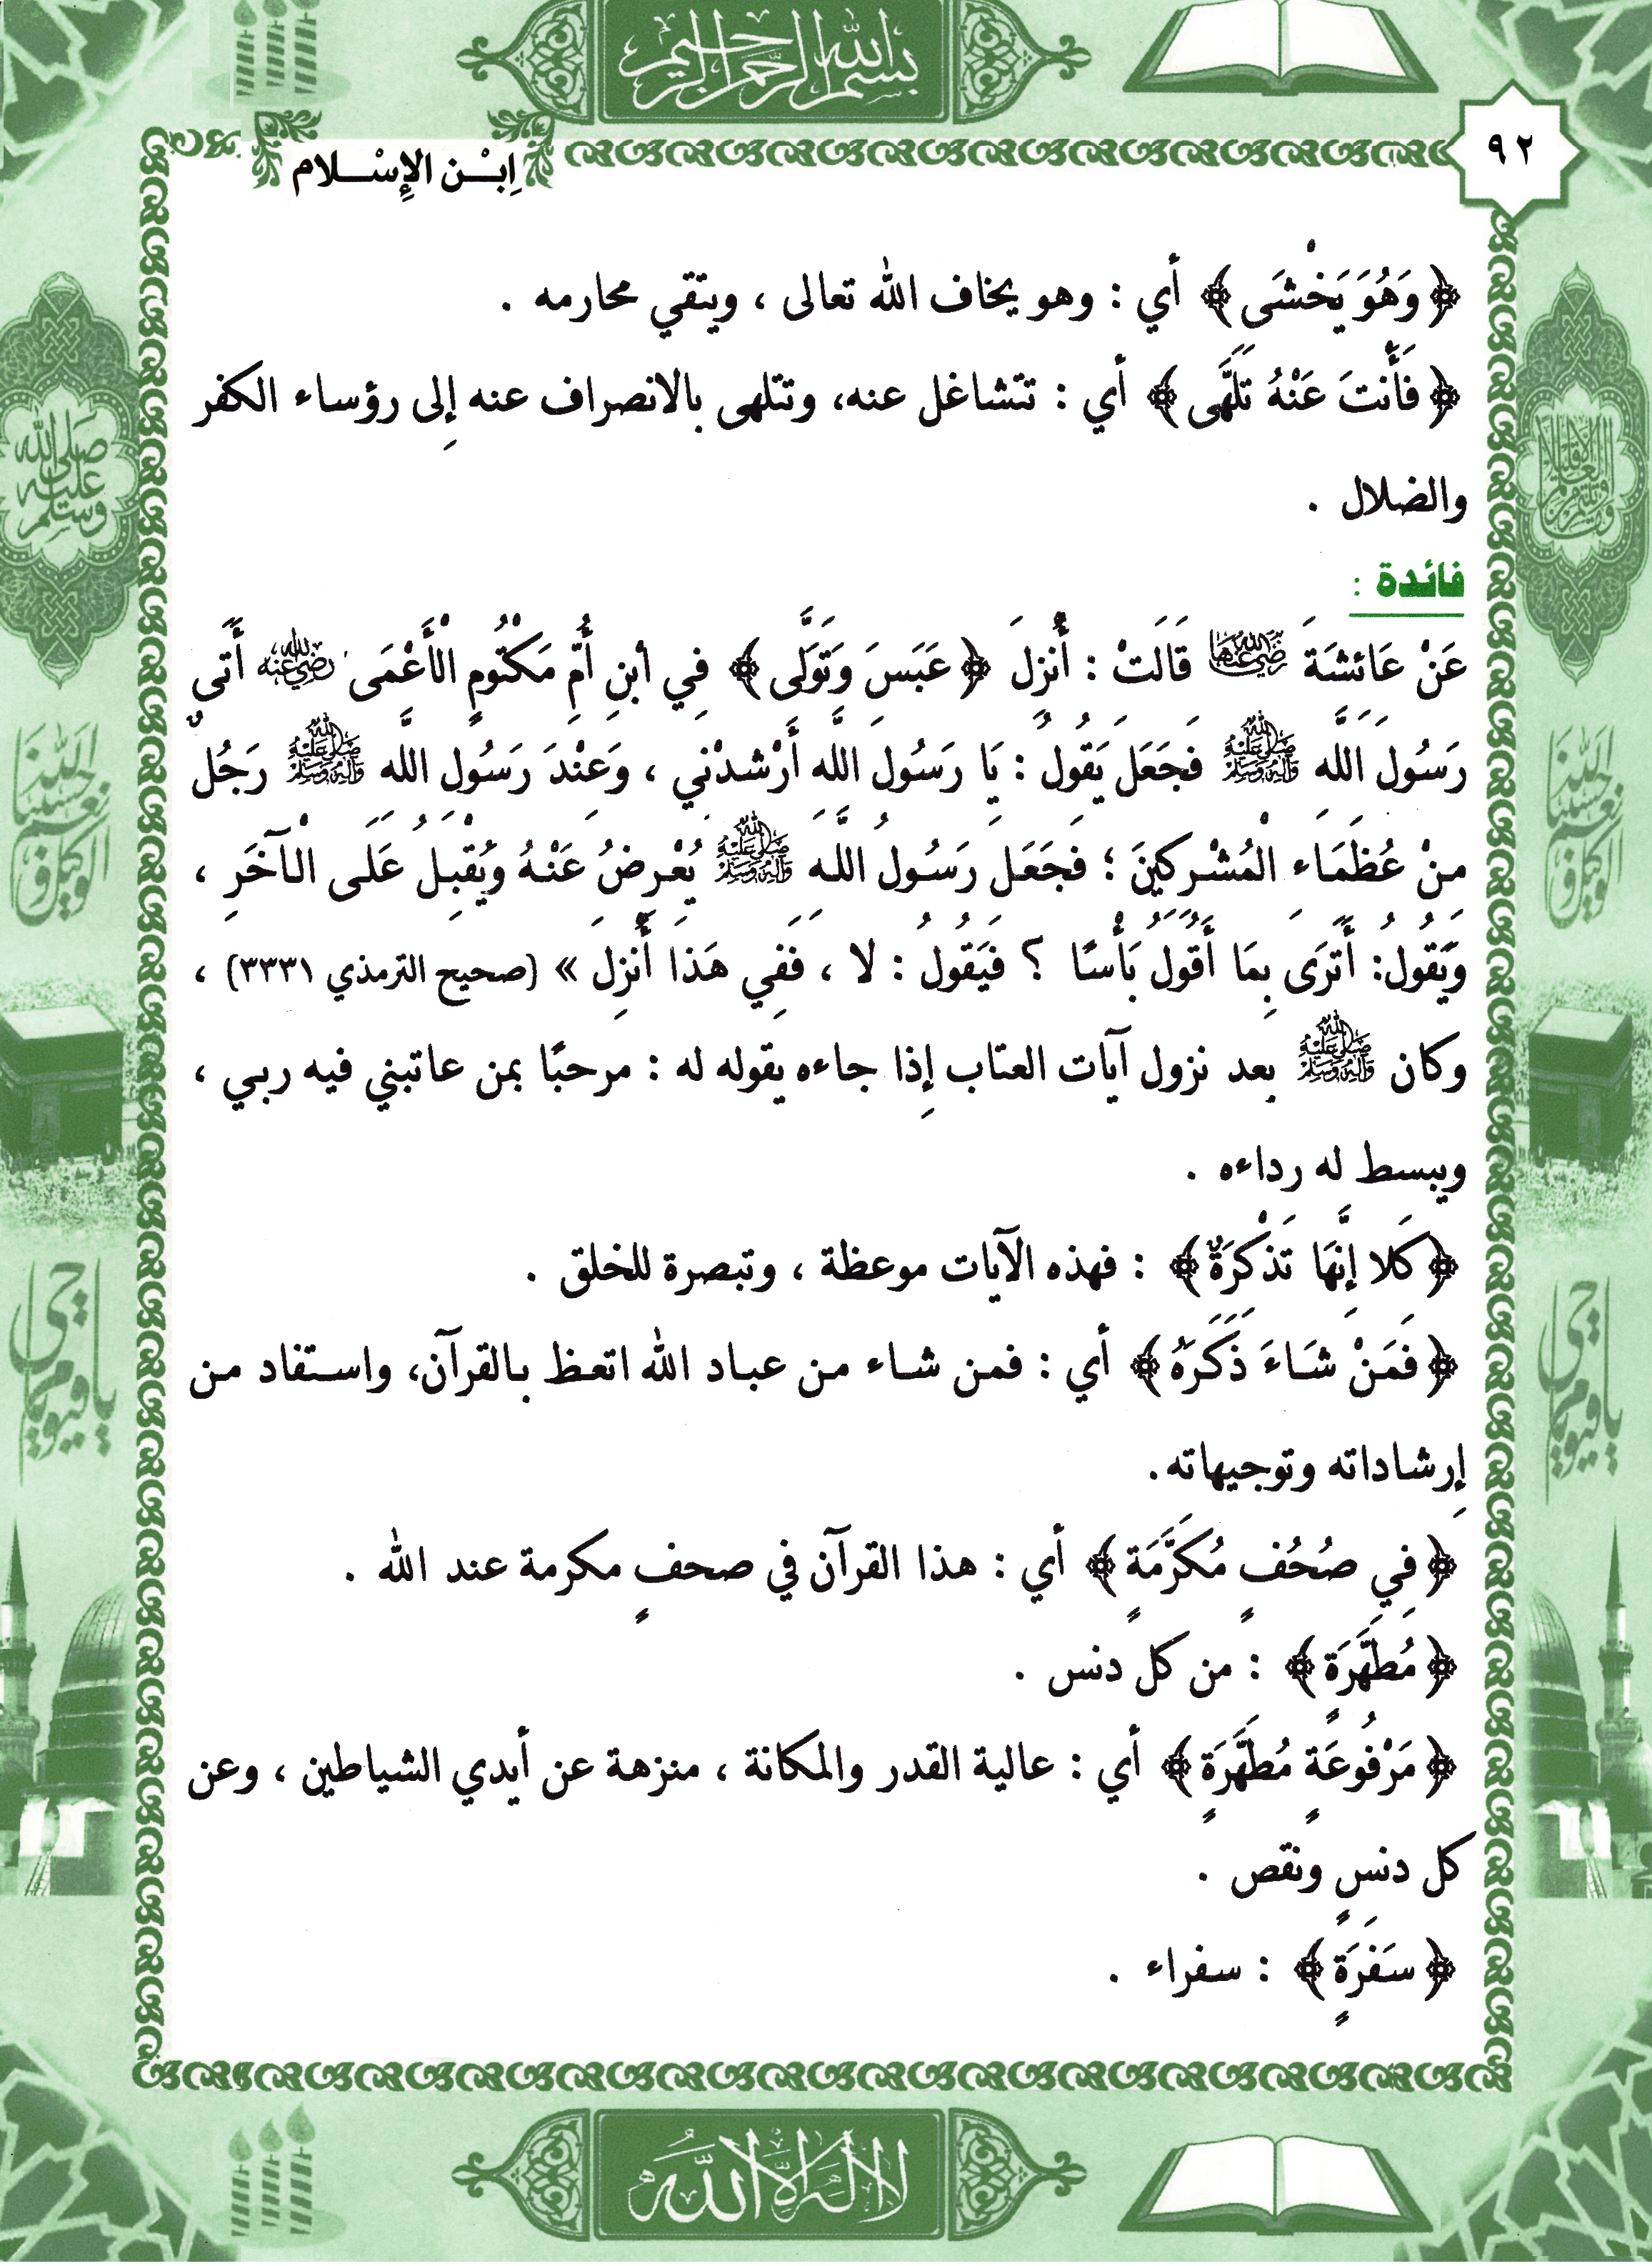 بسم الله الرحمن الرحيم
٩٢
اِبْـن الإِسْـلام
﴿وَهُوَ يَخْشَى﴾ أي : وهو يخاف الله تعالى ، ويتقي محارمه .
﴿فَأَنتَ عَنْهُ تَلَهَّى﴾ أي : تتشاغل عنه، وتتلهى بالانصراف عنه إِلى رؤساء الكفر
والضلال .
فائدة :
عَنْ عَائِشَةَ رضي الله عنها قَالَتْ : أُنْزِلَ ﴿عَبَسَ وَتَوَلَّى﴾ فِي ابْنِ أُمِّ مَكْتُومٍ الْأَعْمَى رضي الله عنه أَتَى
رَسُولَ اللَّهِ ﷺ فَجَعَلَ يَقُولُ : يَا رَسُولَ اللَّهِ أَرْشِدْنِي ، وَعِنْدَ رَسُولِ اللَّهِ ﷺ رَجُلٌ
مِنْ عُظَمَاءِ الْمُشْرِكِينَ ؛ فَجَعَلَ رَسُولُ اللَّهِ ﷺ يُعْرِضُ عَنْهُ وَيُقْبِلُ عَلَى الْآخَرِ ،
وَيَقُولُ: أَتَرَى بِمَا أَقُولُ بَأْسًا ؟ فَيَقُولُ : لا ، فَفِي هَذَا أُنْزِلَ » (صحيح الترمذي ٣٣٣١) ،
وكان ﷺ بعد نزول آيات العتاب إِذا جاءه يقوله له : مرحبًا بمن عاتبني فيه ربي ،
ويبسط له رداءه .
﴿كَلا إِنَّهَا تَذْكِرَةٌ﴾ : فهذه الآيات موعظة ، وتبصرة للخلق .
﴿فَمَنْ شَاءَ ذَكَرَهُ﴾ أي : فمن شاء من عباد الله اتعظ بالقرآن، واستفاد من
إِرشاداته وتوجيهاته.
﴿فِي صُحُفٍ مُكَرَّمَةٍ﴾ أي : هذا القرآن في صحفٍ مكرمة عند الله .
﴿مُطَهَّرَةٍ﴾ : من كل دنس .
﴿مَرْفُوعَةٍ مُطَهَّرَةٍ﴾ أي : عالية القدر والمكانة ، منزهة عن أيدي الشياطين ، وعن
كل دنسٍ ونقص .
﴿سَفَرَةٍ﴾ : سفراء .
صلى الله عليه وسلم
الله حسبنا ونعم الوكيل
يا حي يا قيوم
لا إله إلا الله